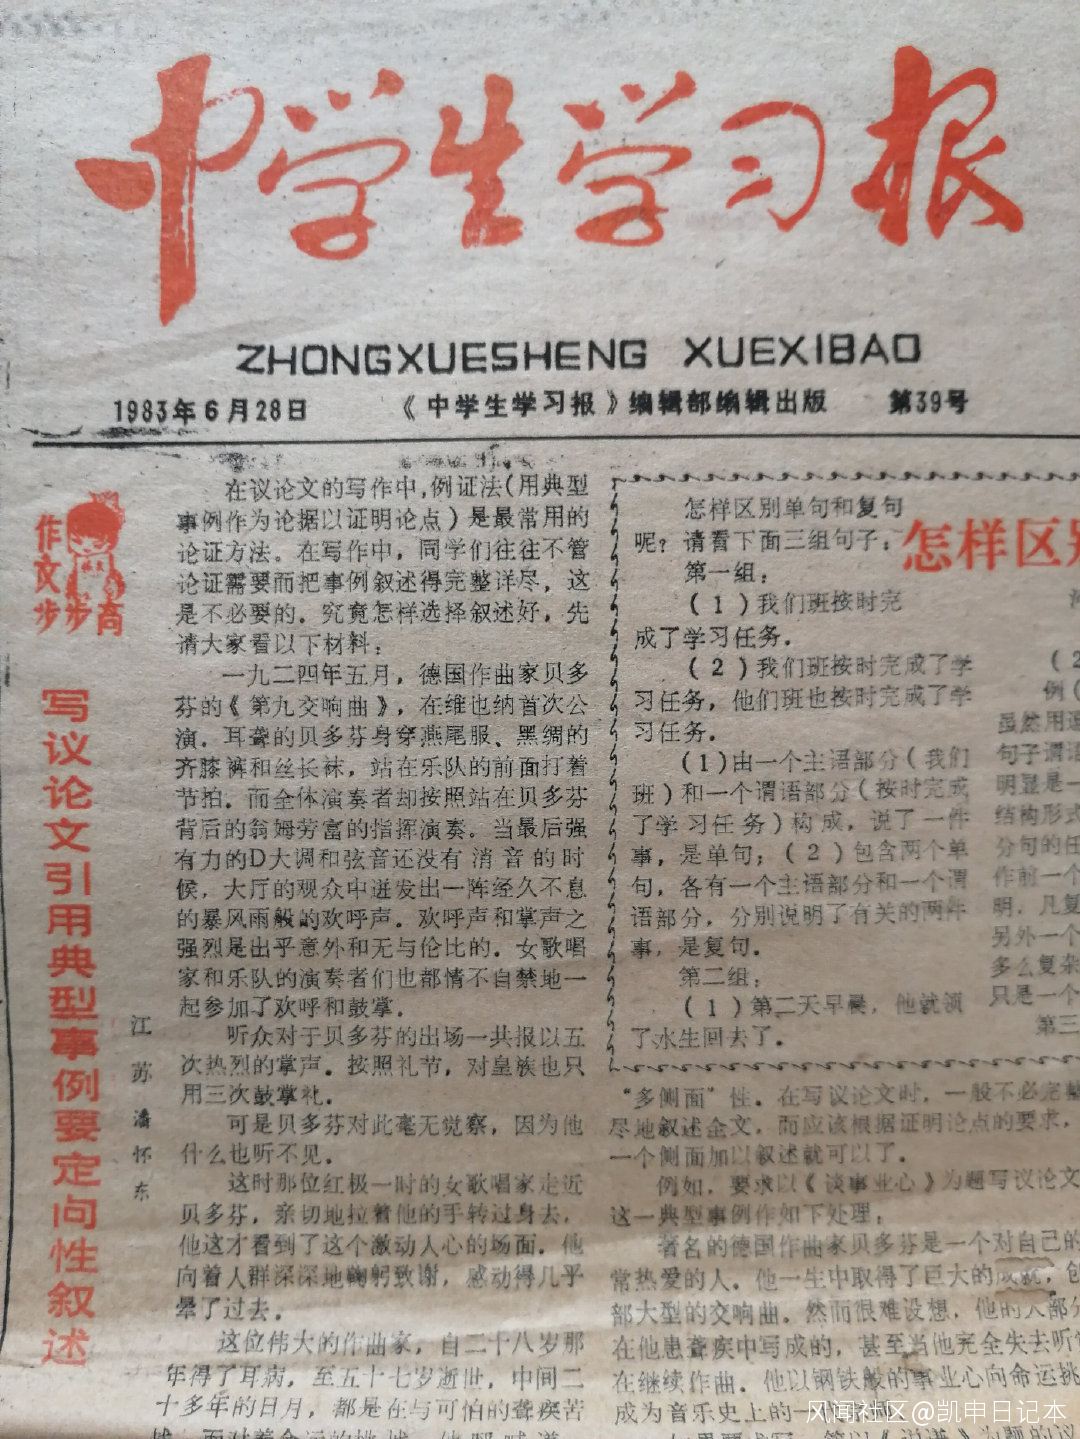 中学生学习报
ZHONGXUESHENG XUEXIBAO
1983年6月28日 《中学生学习报》编辑部编辑出版 第39号
作文步步高
写议论文引用典型事例要定向性叙述
江苏 潘怀东
在议论文的写作中,例证法(用典型
事例作为论据以证明论点)是最常用的
论证方法。在写作中，同学们往往不管
论证需要而把事例叙述得完整详尽，这
是不必要的。究竟怎样选择叙述好，先
请大家看以下材料：
一九二四年五月，德国作曲家贝多
芬的《第九交响曲》，在维也纳首次公
演．耳聋的贝多芬身穿燕尾服、黑绸的
齐膝裤和丝长袜，站在乐队的前面打着
节拍．而全体演奏者却按照站在贝多芬
背后的翁姆劳富的指挥演奏。当最后强
有力的D大调和弦音还没有消音的时
候，大厅的观众中迸发出一阵经久不息
的暴风雨般的欢呼声。欢呼声和掌声之
强烈是出乎意外和无与伦比的．女歌唱
家和乐队的演奏者们也都情不自禁地一
起参加了欢呼和鼓掌．
听众对于贝多芬的出场一共报以五
次热烈的掌声．按照礼节，对皇族也只
用三次鼓掌礼．
可是贝多芬对此毫无觉察，因为他
什么也听不见．
这时那位红极一时的女歌唱家走近
贝多芬，亲切地拉着他的手转过身去．
他这才看到了这个激动人心的场面．他
向着人群深深地鞠躬致谢，感动得几乎
晕了过去．
这位伟大的作曲家，自二十八岁那
年得了耳病，至五十七岁逝世，中间二
十多年的日月，都是在与可怕的聋疾苦
怎样区别
怎样区别单句和复句
呢？请看下面三组句子：
第一组：
(1)我们班按时完
成了学习任务．
(2)我们班按时完成了学
习任务，他们班也按时完成了学
习任务．
(1)由一个主语部分(我们
班)和一个谓语部分(按时完成
了学习任务)构成，说了一件
事，是单句；(2)包含两个单
句，各有一个主语部分和一个谓
语部分，分别说明了有关的两件
事，是复句．
第二组：
(1)第二天早晨，他就领
了水生回去了．
(2
例(
虽然用逗
句子谓语
明显是一
结构形式
分句的任
作前一个
明．凡复
另外一个
多么复杂
只是一个
第三
“多侧面”性．在写议论文时，一般不必完整
尽地叙述全文，而应该根据证明论点的要求，
一个侧面加以叙述就可以了．
例如，要求以《谈事业心》为题写议论文
这一典型事例作如下处理：
著名的德国作曲家贝多芬是一个对自己的
常热爱的人．他一生中取得了巨大的成就，创
部大型的交响曲．然而很难设想，他的大部分
在他患聋疾中写成的，甚至当他完全失去听
在继续作曲．他以钢铁般的事业心向命运挑
成为音乐史上的一
风闻社区@凯申日记本